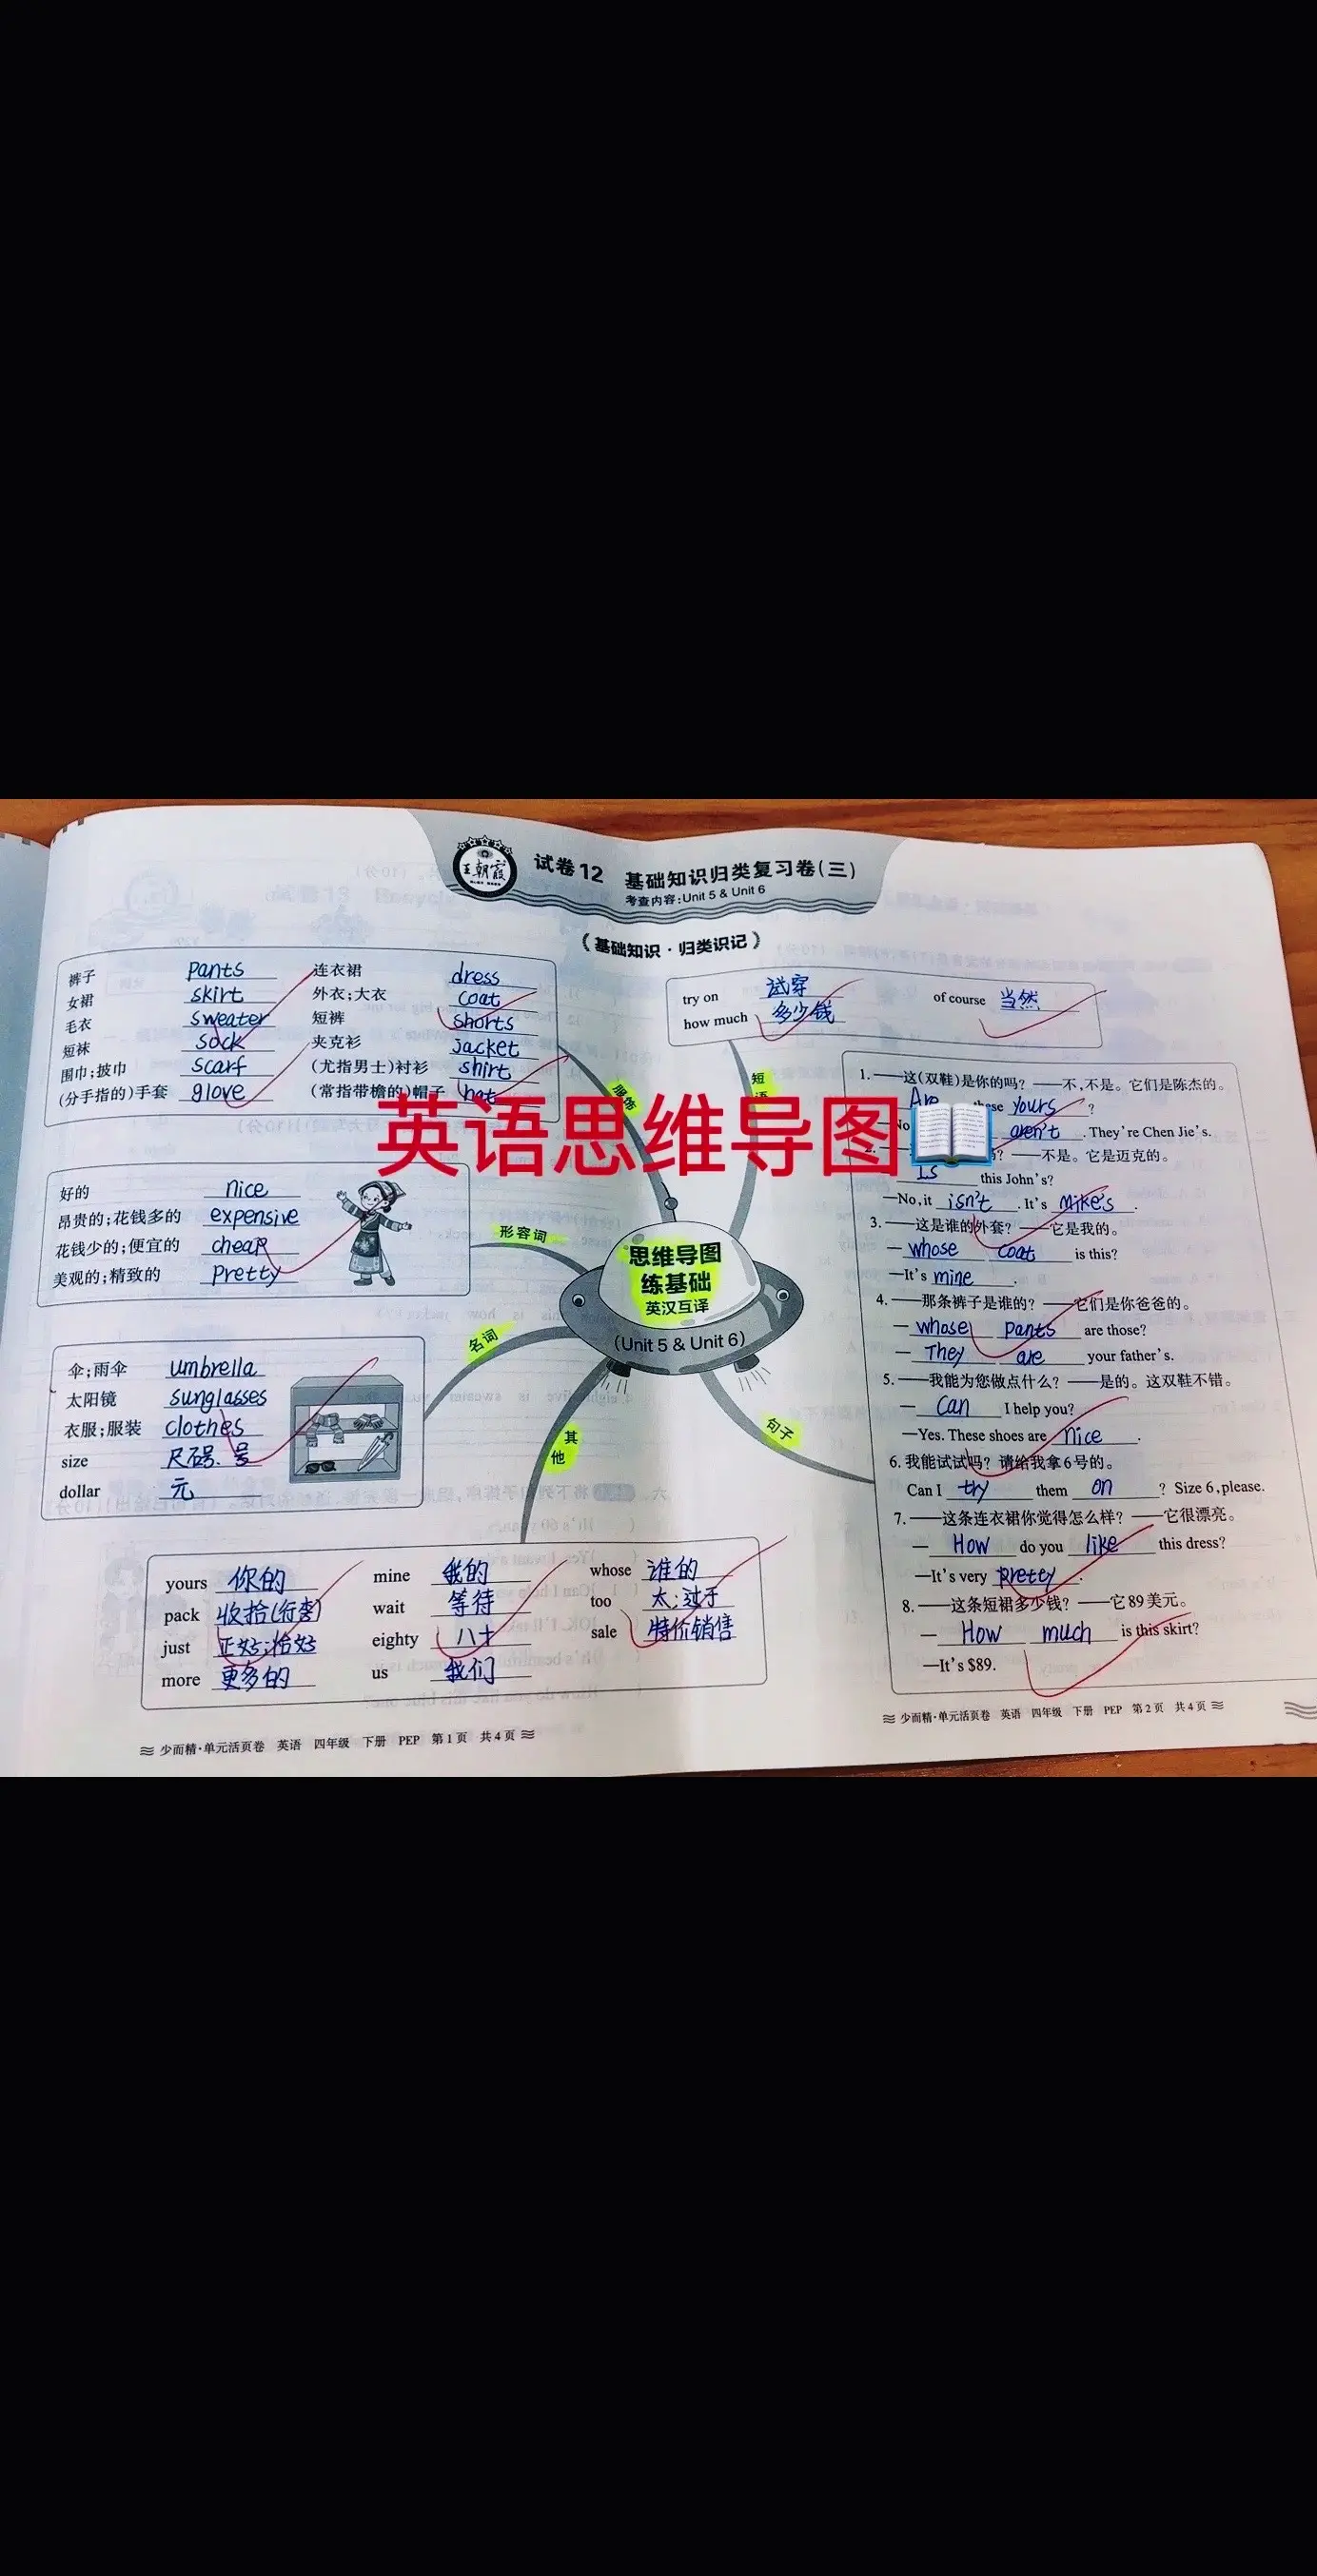 王朝霞
试卷12 基础知识归类复习卷(三)
考查内容:Unit 5 & Unit 6
《基础知识·归类识记》
裤子 pants 连衣裙 dress
女裙 skirt 外衣;大衣 coat
毛衣 sweater 短裤 shorts
短袜 sock 夹克衫 jacket
围巾;披巾 scarf (尤指男士)衬衫 shirt
(分手指的)手套 glove (常指带檐的)帽子 hat
服饰
try on 试穿 of course 当然
how much 多少钱
短语
英语思维导图📖
好的 nice
昂贵的;花钱多的 expensive
花钱少的;便宜的 cheap
美观的;精致的 pretty
形容词
思维导图
练基础
英汉互译
(Unit 5 & Unit 6)
名词
伞;雨伞 umbrella
太阳镜 sunglasses
衣服;服装 clothes
size 尺码.号
dollar 元
其他
句子
yours 你的 mine 我的 whose 谁的
pack 收拾(行李) wait 等待 too 太;过于
just 正好;恰好 eighty 八十 sale 特价销售
more 更多的 us 我们
1.——这(双鞋)是你的吗? ——不,不是。它们是陈杰的。
Are yours ?
aren't . They're Chen Jie's.
——不是。它是迈克的。
Is this John's?
—No,it isn't . It's Mike's .
3.——这是谁的外套? ——它是我的。
— whose coat is this?
—It's mine .
4.——那条裤子是谁的? ——它们是你爸爸的。
— whose pants are those?
— They are your father's.
5.——我能为您做点什么? ——是的。这双鞋不错。
— Can I help you?
—Yes. These shoes are nice .
6.我能试试吗? 请给我拿6号的。
Can I try them on ? Size 6,please.
7.——这条连衣裙你觉得怎么样? ——它很漂亮。
— How do you like this dress?
—It's very pretty .
8.——这条短裙多少钱? ——它89美元。
— How much is this skirt?
—It's $89.
少而精·单元活页卷 英语 四年级 下册 PEP 第1页 共4页
少而精·单元活页卷 英语 四年级 下册 PEP 第2页 共4页